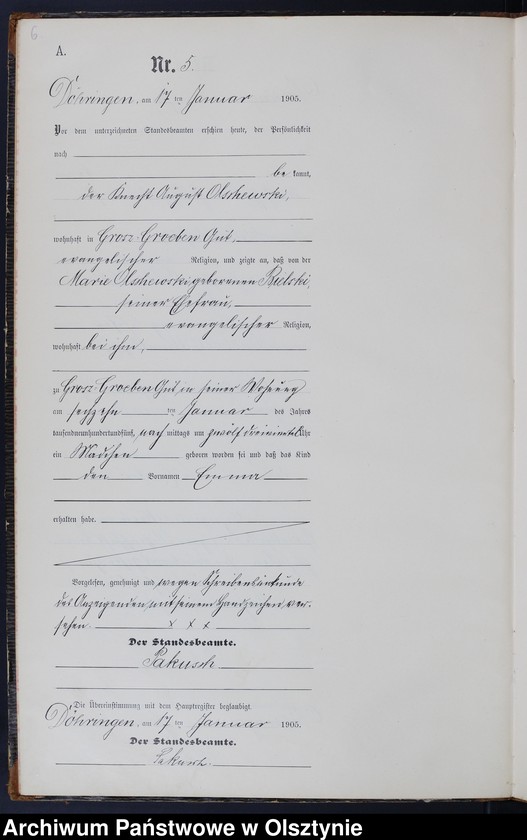 6
A.
Nr. 5.
Döhringen, am 17 ten Januar 1905.
Vor dem unterzeichneten Standesbeamten erschien heute, der Persönlichkeit
nach
be kannt,
der Knecht August Olschewski,
wohnhaft in Grosz Groeben Gut,
evangelischer Religion, und zeigte an, daß von der
Marie Olschewski geborenen
seiner Ehefrau,
evangelischer Religion,
wohnhaft bei ihm,
zu Grosz Groeben Gut in seiner Wohnung
am sechzehn ten Januar des Jahres
tausendneunhundertundfünf, nach mittags um zwölf dreiviertel Uhr
ein Mädchen geboren worden sei und daß das Kind
den Vornamen Emma
erhalten habe.
Vorgelesen, genehmigt und wegen Schreibensunkunde
des Anzeigenden mit seinem Handzeichen ver-
sehen. x x x
Der Standesbeamte.
Pakusch
Die Übereinstimmung mit dem Hauptregister beglaubigt.
Döhringen, am 17 ten Januar 1905.
Der Standesbeamte.
Pakusch.
Archiwum Państwowe w Olsztynie